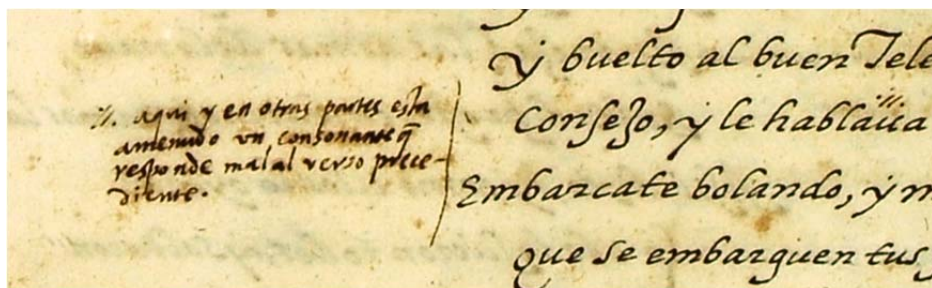 ·//. aqui y en otras partes esta
amenudo vn consonante q̃
responde mal al verso prece-
diente.
y buelto al buen Tele
Consejo, y le hablaua
Embarcate bolando, y m
que se embarquen tus